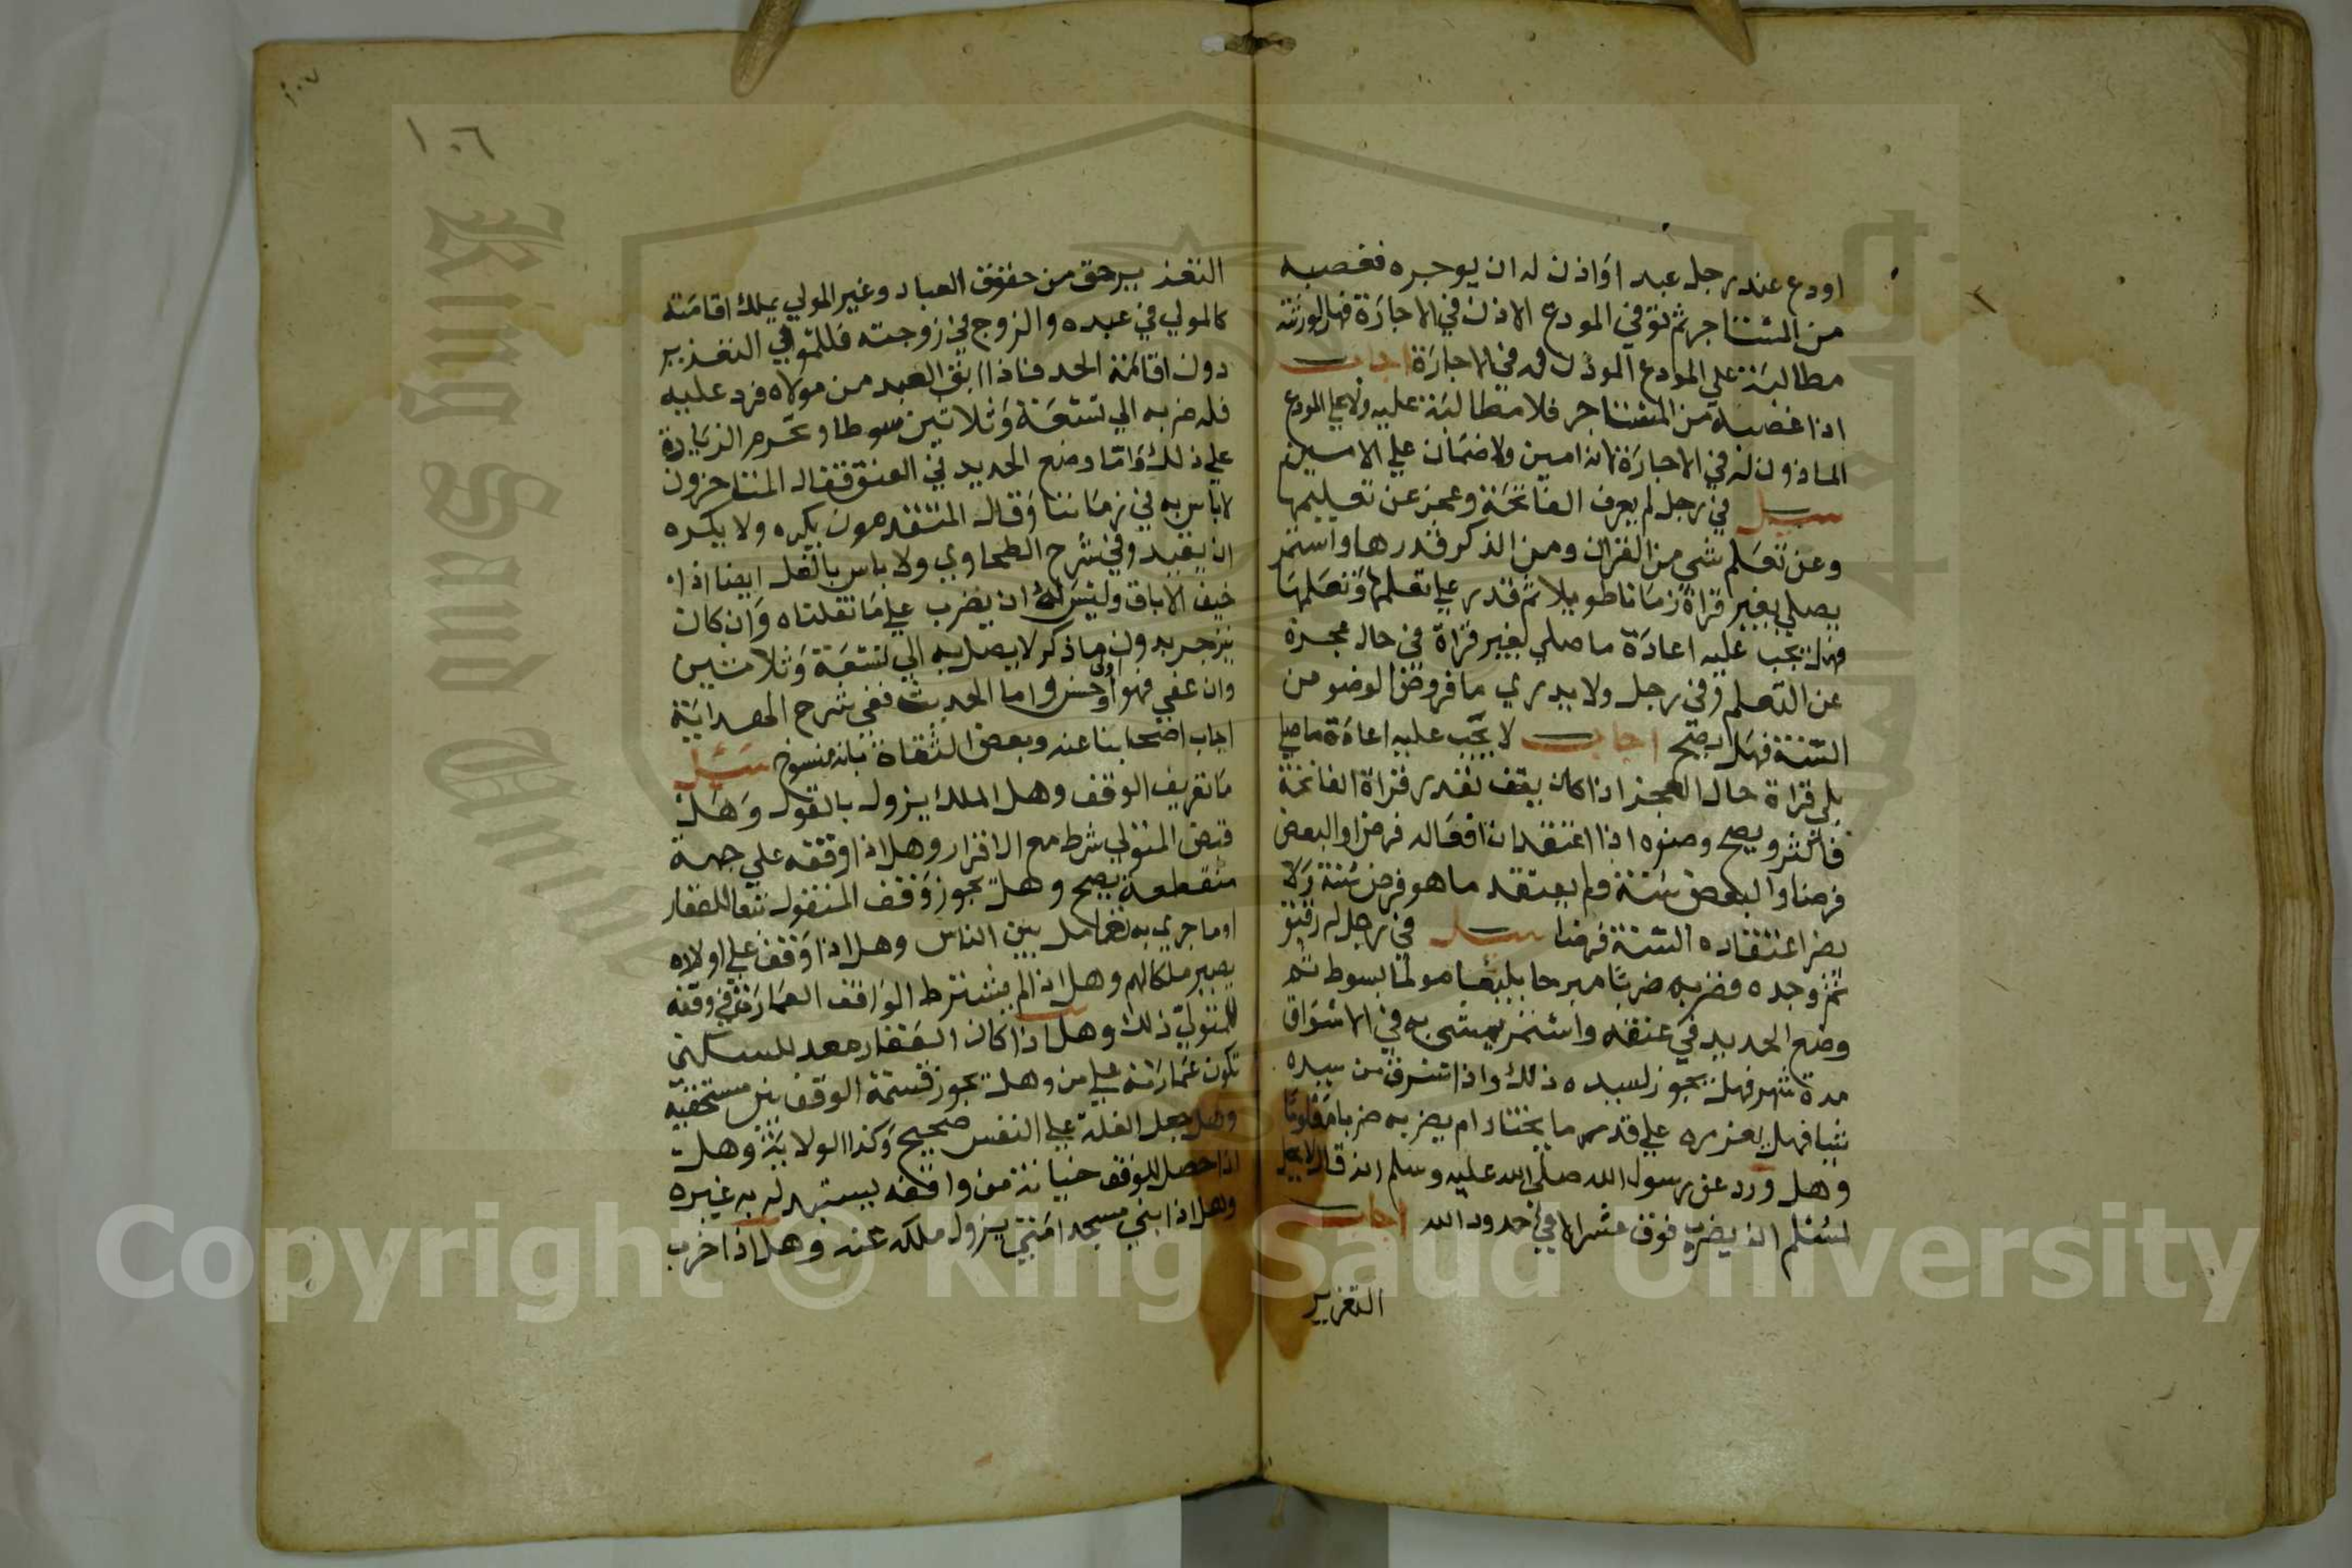 اودع عند رجل عبد اواذن له ان يوجره فغصبه
من المستاجر ثم توفي المودع الاذن في الاجارة فهل لورثته
مطالبة علي المودع الموذن له في الاجارة اجاب
اذا غصبه من المستاجر فلا مطالبة عليه ولا علي المودع
الماذون له في الاجارة لانه امين ولا ضمان علي الامين
سيل في رجل لم يعرف الفاتحة وعجز عن تعليمها
وعن تعلم شي من القران ومن الذكر قدرها واستمر
يصلي بغير قراة زمانا طويلا ثم قدر علي تعلمها وتعلمها
فهل يجب عليه اعادة ما صلي بغير قراة في حال عجزه
عن التعلم وفي رجل ولا يدري ما فروض الوضو من
السنة فهل يصح اجاب لا يجب عليه اعادة ما صلي
بلي قراة حال العجز اذا كان يقف بقدر قراة الفاتحة
فاكثر ويصح وضوه اذا اعتقد ان افعاله فرضا والبعض
فرضا والبعض سنة ولم يعتقد ما هو فرض سنة ولا
يضر اعتقاده السنة فرضا سيل في رجل له رقيق
ثم وجده فضربه ضربا مبرحا بليغا مولما بسوط ثم
وضع الحديد في عنقه واستمر يمشي به في الاسواق
مدة شهر فهل يجوز لسيده ذلك واذا سرق من سيده
شيا فهل يعزره علي قدر ما يختار ام يضربه ضربا معلوما
وهل ورد عن رسول الله صلي الله عليه وسلم انه قال لا يحل
لمسلم ان يضرب فوق عشر الا في حدود الله اجاب
التعزير
١٠٦
١٠٧
التعزير حق من حقوق العباد وغير المولي يملك اقامته
كالمولي في عبده والزوج في زوجته فللمولي التعزير
دون اقامة الحد فاذا ابق العبد من مولاه فرد عليه
فله ضربه الي تسعة وثلاثين سوطا وتحرم الزيادة
علي ذلك واما وضع الحديد في العنق فقال المتاخرون
لا باس به في زماننا وقال المتقدمون يكره ولا يكره
ان يقيد وفي شرح الطحاوي ولا باس بالغل ايضا اذا
خيف الاباق وليس له ان يضرب علي ما نقلناه وان كان
ينزجر بدون ما ذكر لا يصل به الي تسعة وثلاثين
وان عفي فهو اولي وحسن واما الحديث ففي شرح الهداية
اجاب اصحابنا عنه وبعض الثقاة بانه منسوخ سئل
ما تعريف الوقف وهل الملك يزول بالقول وهل
قبض المتولي شرط مع الاقرار وهل اذا اوقفه علي جهة
منقطعة يصح وهل يجوز وقف المنقول تبعا للعقار
او ما جري به تعامل بين الناس وهل اذا وقف علي اولاده
يصير ملكا لهم وهل اذا لم يشترط الواقف العمارة في وقفه
للمتولي ذلك وهل اذا كان العقار معد للسكني
تكون عمارته علي من وهل تجوز قسمة الوقف بين مستحقيه
وهل جعل الغلة علي النفس صحيح وكذا الولاية وهل
اذا حصل للوقف خيانة من واقفه يستبدله به غيره
وهل اذا بني مسجد امتي يزول ملكه عنه وهل اذا خرب
King Saud University
Copyright © King Saud University